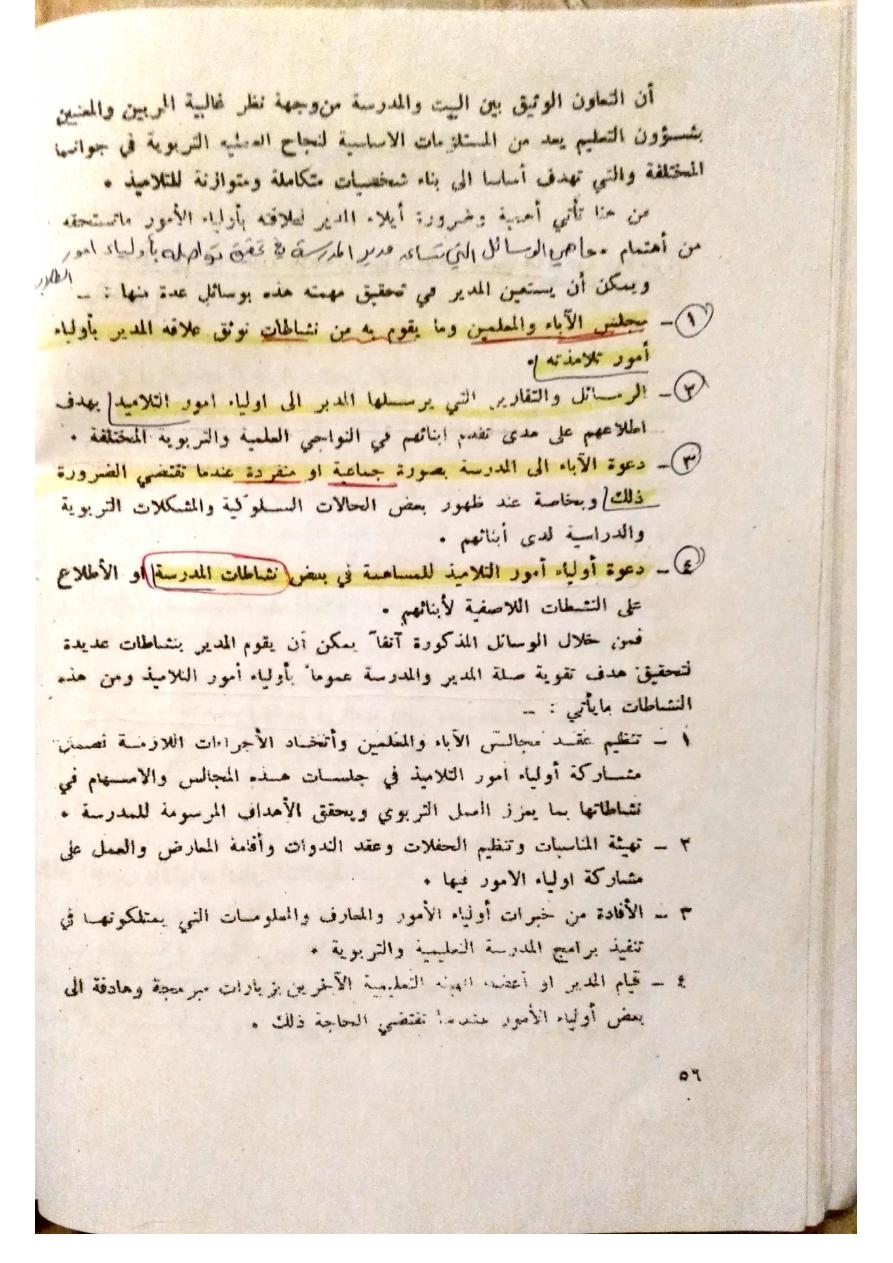 أن التعاون الوثيق بين البيت والمدرسة من وجهة نظر غالبية المربين والمعنيين
بشؤون التعليم يعد من المستلزمات الاساسية لنجاح العمليه التربوية في جوانبها
المختلفة والتي تهدف أساسا الى بناء شخصيات متكاملة ومتوازنة للتلاميذ .
من هنا تأتي أهمية وضرورة أيلاء المدير لعلاقته بأولياء الأمور ماتستحقه
من أهتمام . ماهي الوسائل التي تساعد مدير المدرسة في تحقق تواصله بأولياء امور الطلاب
ويمكن أن يستعين المدير في تحقيق مهمته هذه بوسائل عدة منها : ــ
١ ــ مجلس الآباء والمعلمين وما يقوم به من نشاطات توثق علاقه المدير بأولياء
أمور تلامذته .
٢ ــ الرسائل والتقارير التي يرسلها المدير الى اولياء امور التلاميذ بهدف
اطلاعهم على مدى تقدم ابنائهم في النواحي العلمية والتربوية المختلفة .
٣ ــ دعوة الآباء الى المدرسة بصورة جماعية او منفردة عندما تقتضي الضرورة
ذلك وبخاصة عند ظهور بعض الحالات السلوكية والمشكلات التربوية
والدراسية لدى أبنائهم .
٤ ــ دعوة أولياء أمور التلاميذ للمساهمة في بعض نشاطات المدرسة او الأطلاع
على النشطات اللاصفية لأبنائهم .
فمن خلال الوسائل المذكورة آنفاً يمكن أن يقوم المدير بنشاطات عديدة
لتحقيق هدف تقوية صلة المدير والمدرسة عموماً بأولياء أمور التلاميذ ومن هذه
النشاطات مايأتي : ــ
١ ــ تنظيم عقد مجالس الآباء والمعلمين وأتخاد الأجراءات اللازمة تضمن
مشاركة أولياء أمور التلاميذ في جلسات هذه المجالس والاسهام في
نشاطاتها بما يعزز العمل التربوي ويحقق الأهداف المرسومة للمدرسة .
٢ ــ تهيئة المناسبات وتنظيم الحفلات وعقد الندوات وأقامة المعارض والعمل على
مشاركة اولياء الامور فيها .
٣ ــ الأفادة من خبرات أولياء الأمور والمعارف والمعلومات التي يمتلكونها في
تنفيذ برامج المدرسة التعليمية والتربوية .
٤ ــ قيام المدير او أعضاء الهيئه التعليمية الآخرين بزيارات مبرمجة وهادفة الى
بعض أولياء الأمور عندما تقتضي الحاجة ذلك .
٥٦